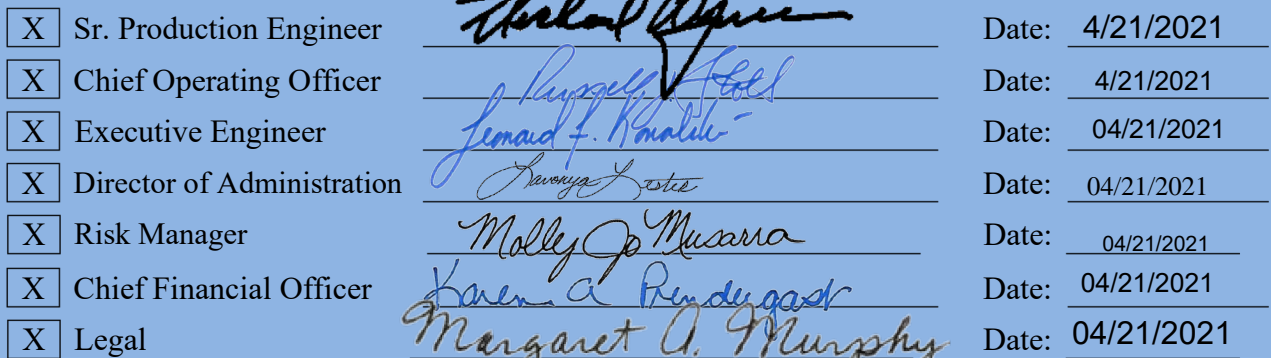 X Sr. Production Engineer Date: 4/21/2021
X Chief Operating Officer Russell J Stoll Date: 4/21/2021
X Executive Engineer Leonard F. Kowalski Date: 04/21/2021
X Director of Administration Lavonya Lester Date: 04/21/2021
X Risk Manager Molly Jo Musarra Date: 04/21/2021
X Chief Financial Officer Karen A Prendergast Date: 04/21/2021
X Legal Margaret A. Murphy Date: 04/21/2021